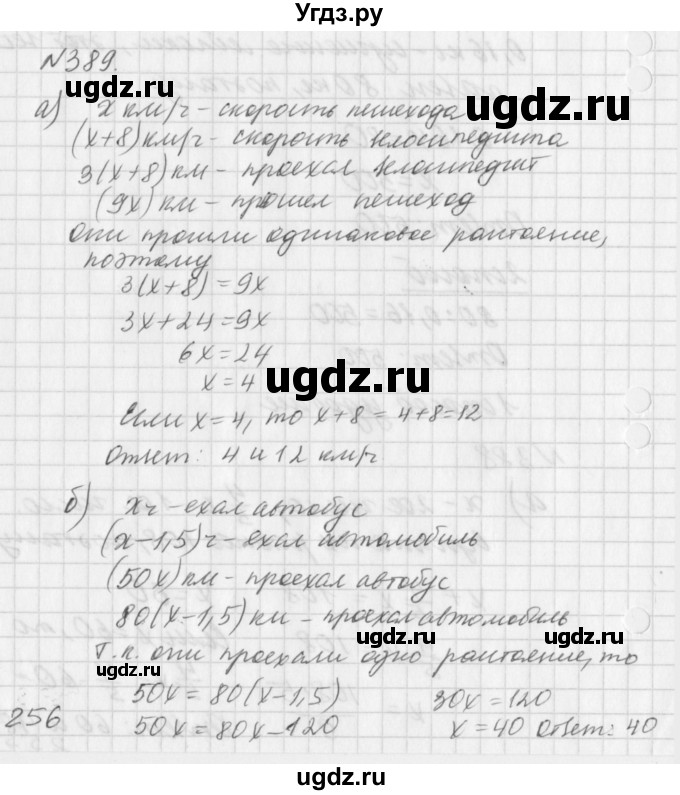 Угдз.ру
№389.
а) x км/ч - скорость пешехода
(x+8) км/ч - скорость велосипедиста
3(x+8) км - проехал велосипедист
(9x) км - прошел пешеход
Они прошли одинаковое расстояние,
поэтому
3(x+8) = 9x
3x+24 = 9x
6x = 24
x = 4
Если x = 4, то x+8 = 4+8=12
Ответ: 4 и 12 км/ч
б) x ч - ехал автобус
(x-1,5) ч - ехал автомобиль
(50x) км - проехал автобус
80(x-1,5) км - проехал автомобиль
Т.к. они проехали одно расстояние, то
50x = 80(x-1,5) 30x = 120
256 50x = 80x-120 x = 40 Ответ: 40
ugdz.ru
ugdz.ru
ugdz.ru
ugdz.ru
ugdz.ru
ugdz.ru
ugdz.ru
ugdz.ru